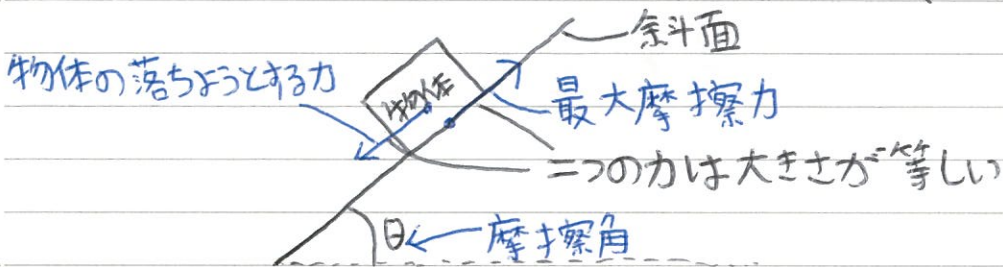 斜面
物体の落ちようとする力
物体
最大摩擦力
二つの力は大きさが等しい
θ
摩擦角